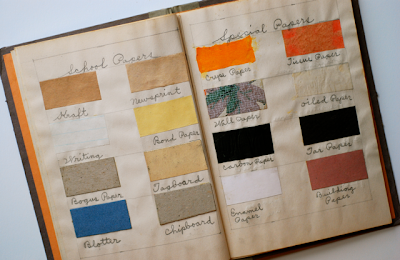 School Papers
Kraft
Newsprint
Writing
Bond Paper
Bogus Paper
Tagboard
Blotter
Chipboard
Special Papers
Crepe Paper
Tissue Paper
Wall Paper
Oiled Paper
Carbon Paper
Tar Paper
Enamel
Paper
Building
Paper